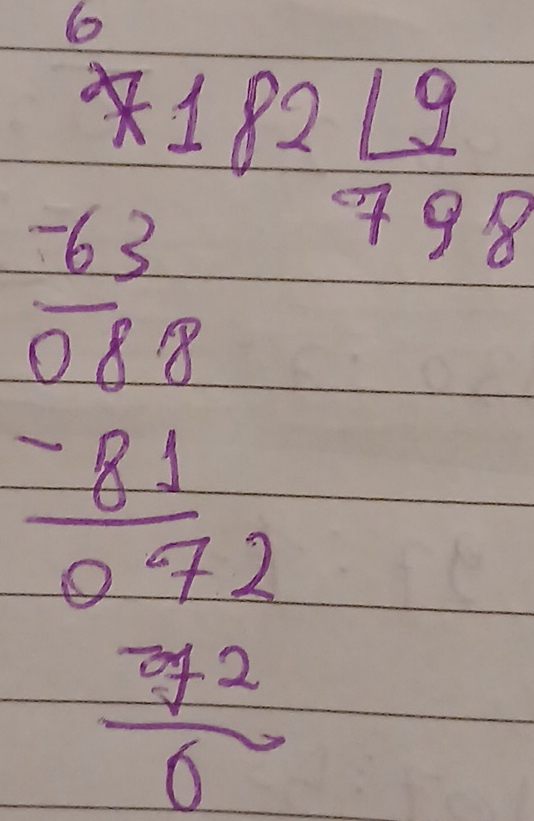 6
7182 9
798
-63
088
-81
072
-72
0